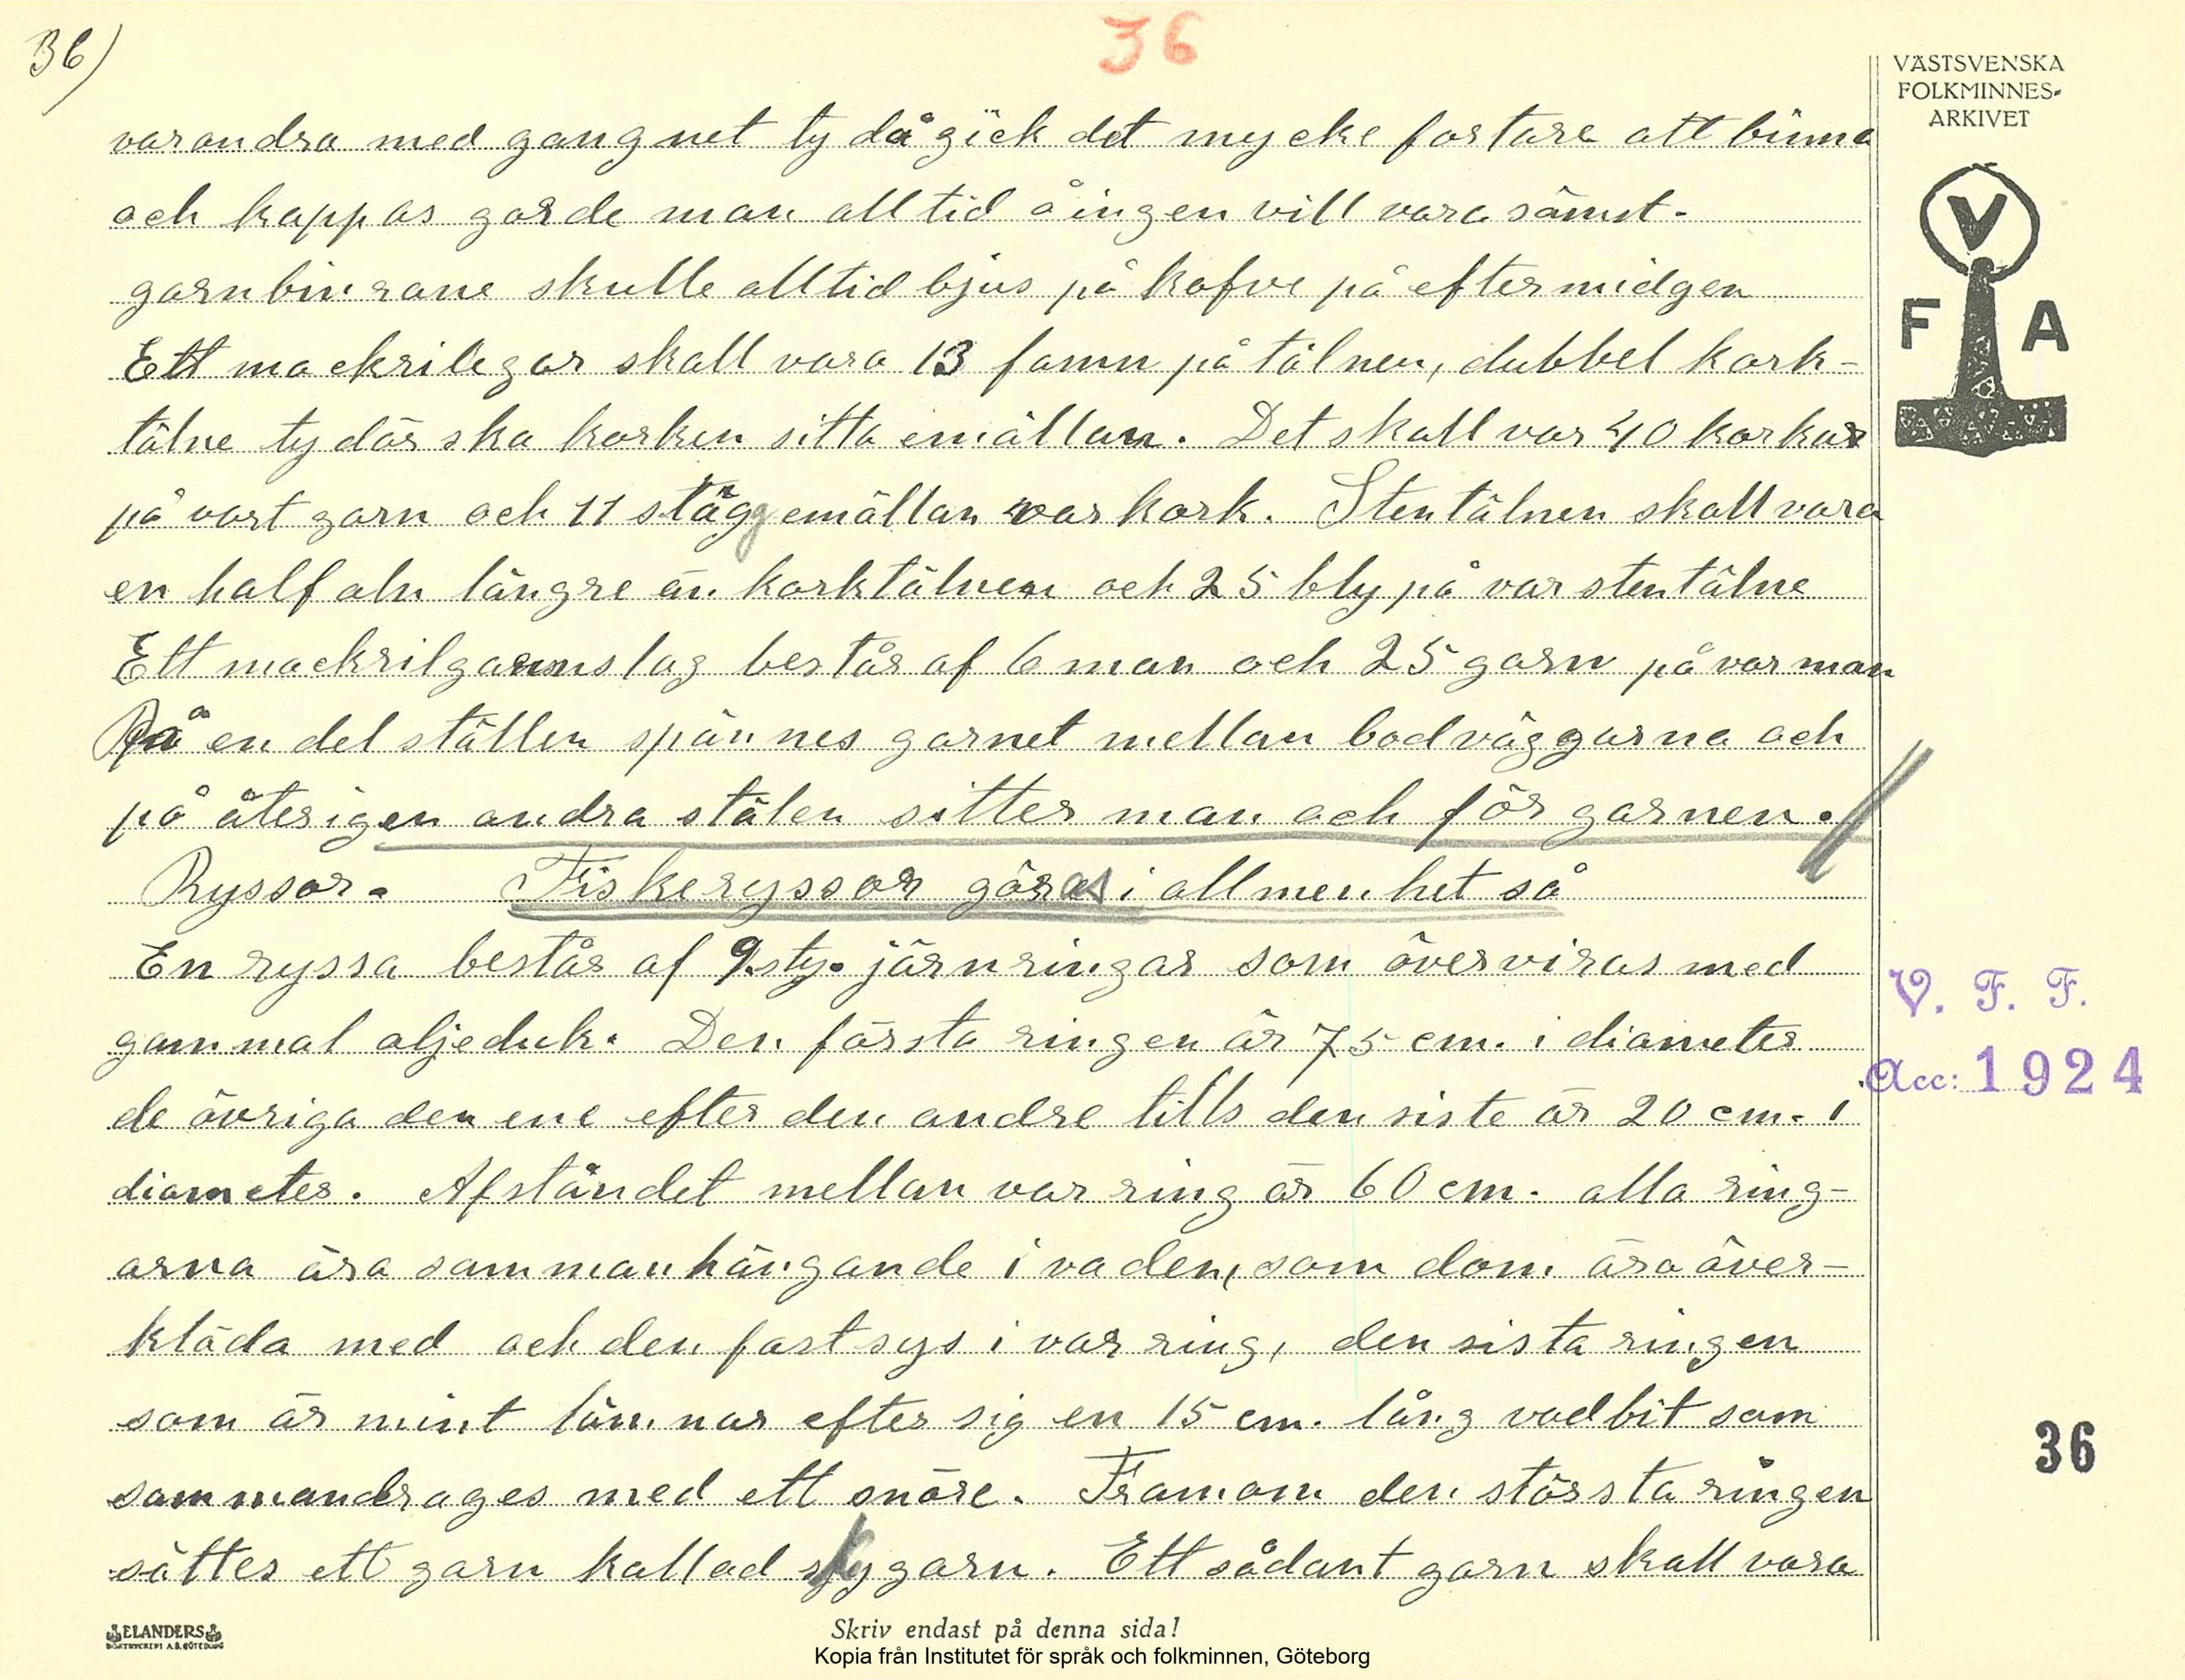 36)
36
VÄSTSVENSKA
FOLKMINNES-
ARKIVET
V
F A
varandra med gangnet ty då gick det mycke fortare att binna
och kappas gorde man alltid å ingen vill vara sämst.
garnbinrane skulle alltid bjus på kafve på eftermidgen
Ett mackrilegar skall vara 13 famn på tälnen, dubbel kork-
tälne ty där ska korken sitta emällan. Det skall var 40 korkar
på vart garn och 11 stägg emällan var kork. Stentälnen skall vara
en half aln längre än korktälnen och 25 bly på var stentälne
Ett mackrilgarnslag består af 6 man och 25 garn på var man
På en del ställen spännes garnet mellan bodväggarna och
på återigen andra stälen sitter man och för garnen.
Ryssor. Fiskeryssor göras i allmenhet så
En ryssa består af 9 sty. järnringar som överviras med
gammal oljeduk. Den första ringen är 75 cm. i diameter
de övriga den ene efter den andre tills den siste är 20 cm. i
diameter. Afståndet mellan var ring är 60 cm. alla ring-
arna ära sammanhängande i vaden, som dom ära över-
kläda med och den fastsys i var ring, den sista ringen
som är minst lämnar efter sig en 15 cm. lång vadbit som
sammandrages med ett snöre. Framom den största ringen
sättes ett garn kallad skygarn. Ett sådant garn skall vara
V. F. F.
Acc: 1924
36
ELANDERS
BOKTRYCKERI A.B. GÖTEBORG
Skriv endast på denna sida!
Kopia från Institutet för språk och folkminnen, Göteborg